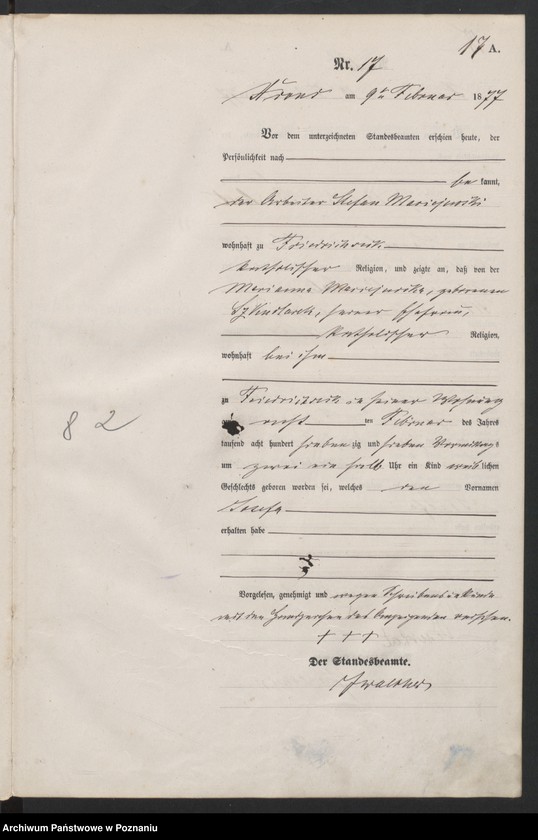 17 A.
Nr. 17
am 9ten Februar 1877
Vor dem unterzeichneten Standesbeamten erschien heute, der
Persönlichkeit nach
bekannt,
der Arbeiter Stefan
wohnhaft zu
katholischer Religion, und zeigte an, daß von der
Marianna geborenen
seiner Ehefrau,
katholischer Religion,
wohnhaft bei ihm
zu in seiner Wohnung
am acht ten Februar des Jahres
tausend acht hundert siebenzig und sieben Vormittags
um zwei ein halb Uhr ein Kind weiblichen
Geschlechts geboren worden sei, welches den Vornamen
Josefa
erhalten habe
8 2
Vorgelesen, genehmigt und wegen Schreibensunkunde
mit den Handzeichen des Anzeigenden versehen.
+ + +
Der Standesbeamte.
Archiwum Państwowe w Poznaniu